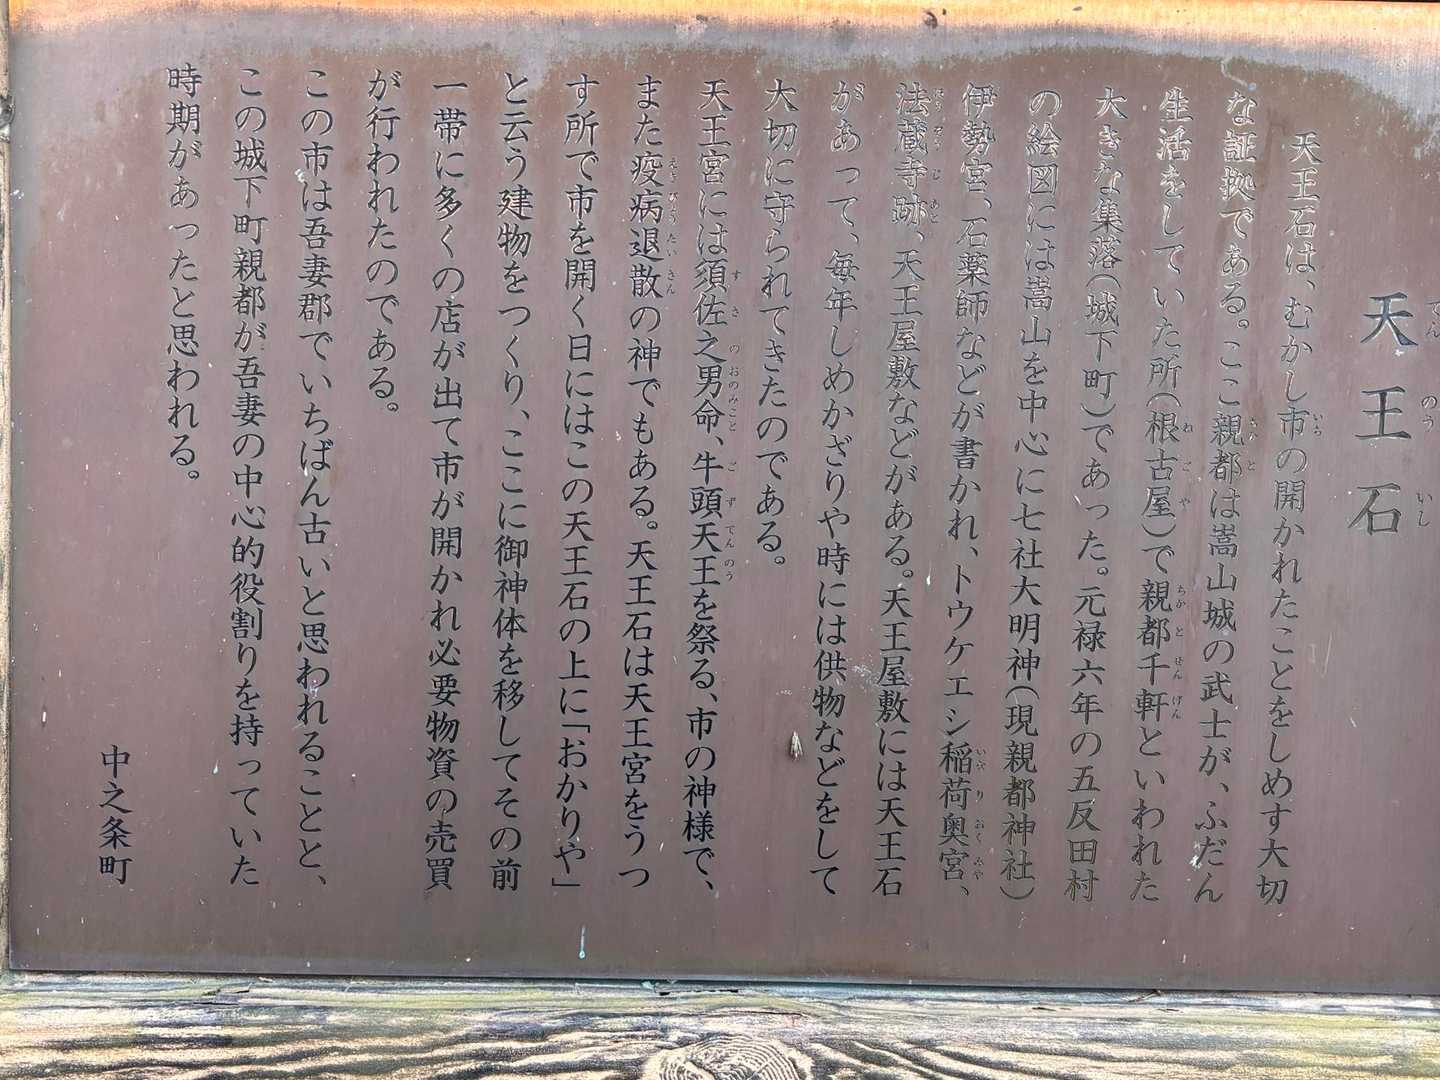 天王石
天王石は、むかし市の開かれたことをしめす大切
な証拠である。ここ親都は嵩山城の武士が、ふだん
生活をしていた所(根古屋)で親都千軒といわれた
大きな集落(城下町)であった。元禄六年の五反田村
の絵図には嵩山を中心に七社大明神(現親都神社)
伊勢宮、石薬師などが書かれ、トウケエシ稲荷奥宮、
法蔵寺跡、天王屋敷などがある。天王屋敷には天王石
があって、毎年しめかざりや時には供物などをして
大切に守られてきたのである。
天王宮には須佐之男命、牛頭天王を祭る、市の神様で、
また疫病退散の神でもある。天王石は天王宮をうつ
す所で市を開く日にはこの天王石の上に「おかりや」
と云う建物をつくり、ここに御神体を移してその前
一帯に多くの店が出て市が開かれ必要物資の売買
が行われたのである。
この市は吾妻郡でいちばん古いと思われることと、
この城下町親都が吾妻の中心的役割りを持っていた
時期があったと思われる。
中之条町